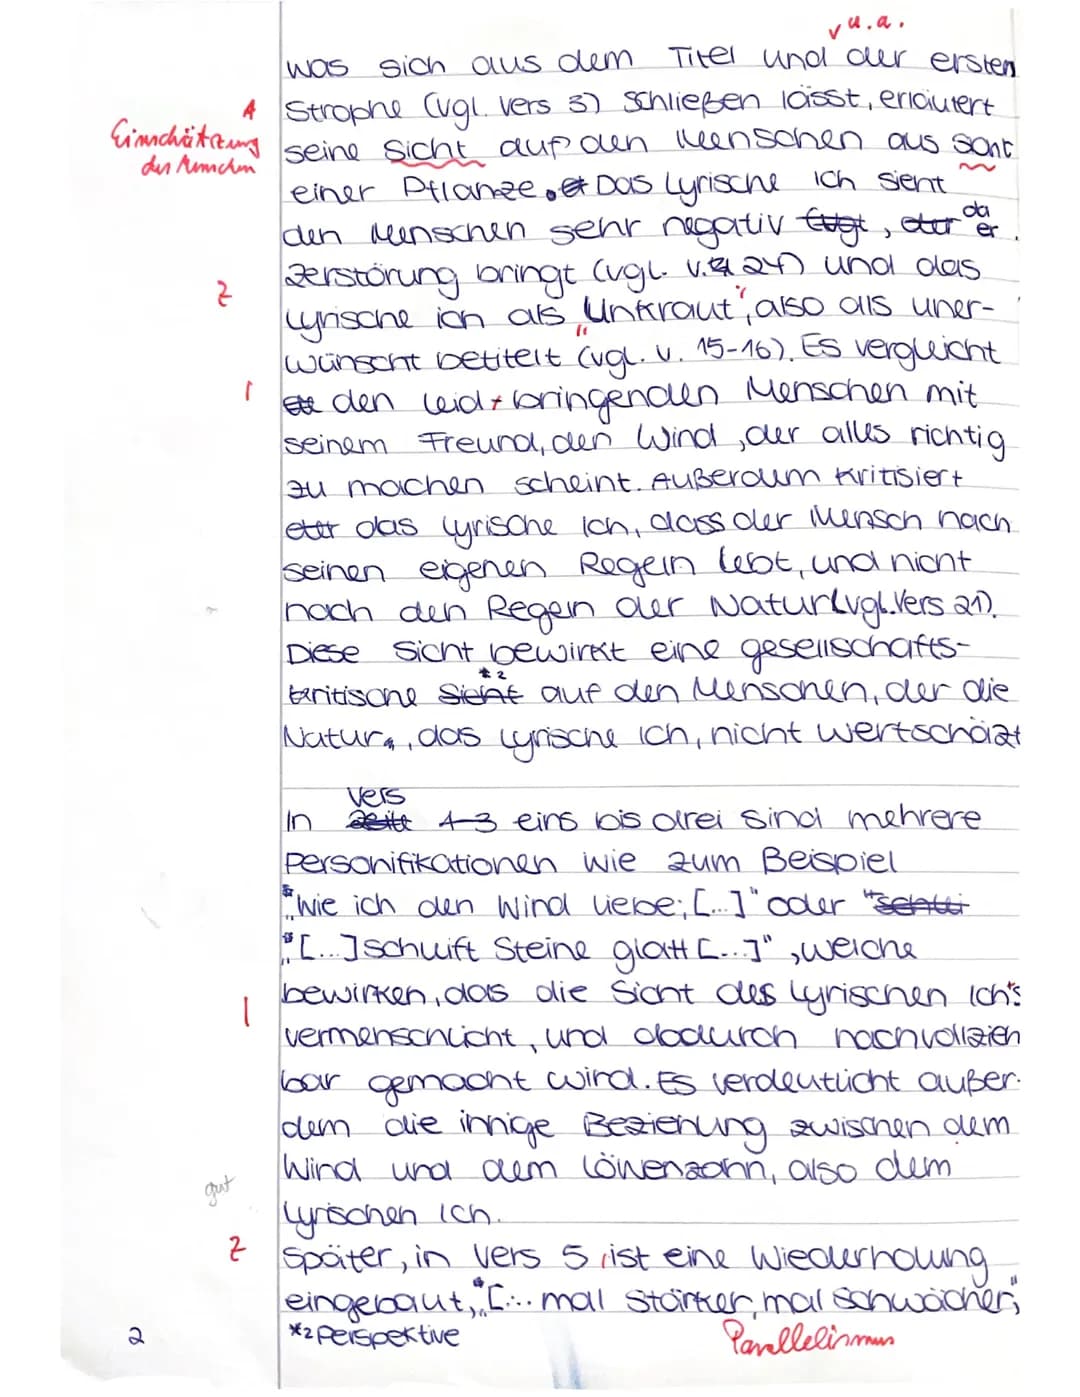 u.a.
was sich aus dem Titel und der ersten
A Strophe (vgl. Vers 3) schließen lässt, erläutert
Einschätzung
des Menschen
seine Sicht auf den Menschen aus Sont
einer Pflanze. Das Lyrische Ich sieht
den Menschen sehr negativ, da er
Zerstörung bringt (vgl. V. 24) und das
Z
lyrische ich als „Unkraut“, also als uner-
wünscht betitelt (vgl. v. 15-16). Es vergleicht
I den Leid bringenden Menschen mit
seinem Freund, den Wind, der alles richtig
zu machen scheint. Außerdem kritisiert
das lyrische Ich, dass der Mensch nach
seinen eigenen Regeln lebt, und nicht
nach den Regeln der Natur (vgl. Vers 21).
Diese Sicht bewirkt eine gesellschafts-
*2
kritische Sicht auf den Menschen, der die
Natur, das lyrische Ich, nicht wertschäzt
Vers
In 1-3 eins bis drei sind mehrere
Personifikationen wie zum Beispiel
„Wie ich den Wind liebe; [...]" oder
„[...] schleift Steine glatt [...]", welche
bewirken, das die Sicht des Lyrischen Ich's
I vermenschlicht, und dadurch nachvollzieh
bar gemacht wird. Es verdeutlicht außer-
dem die innige Beziehung zwischen dem
Wind und dem Löwenzahn, also dem
gut
Lyrischen Ich.
Z Später, in Vers 5, ist eine Wiederholung
eingebaut, „[... mal stärker, mal schwächer,"
*2 Perspektive
Parallelismus
2